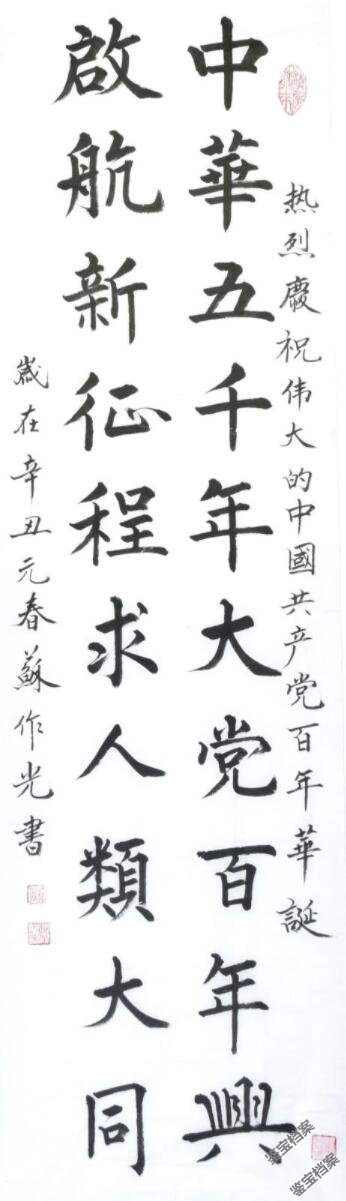 热烈慶祝伟大的中國共产党百年華誕
中華五千年大党百年興
啟航新征程求人類大同
歲在辛丑元春蘇作光書
鉴宝档案
鉴宝档案